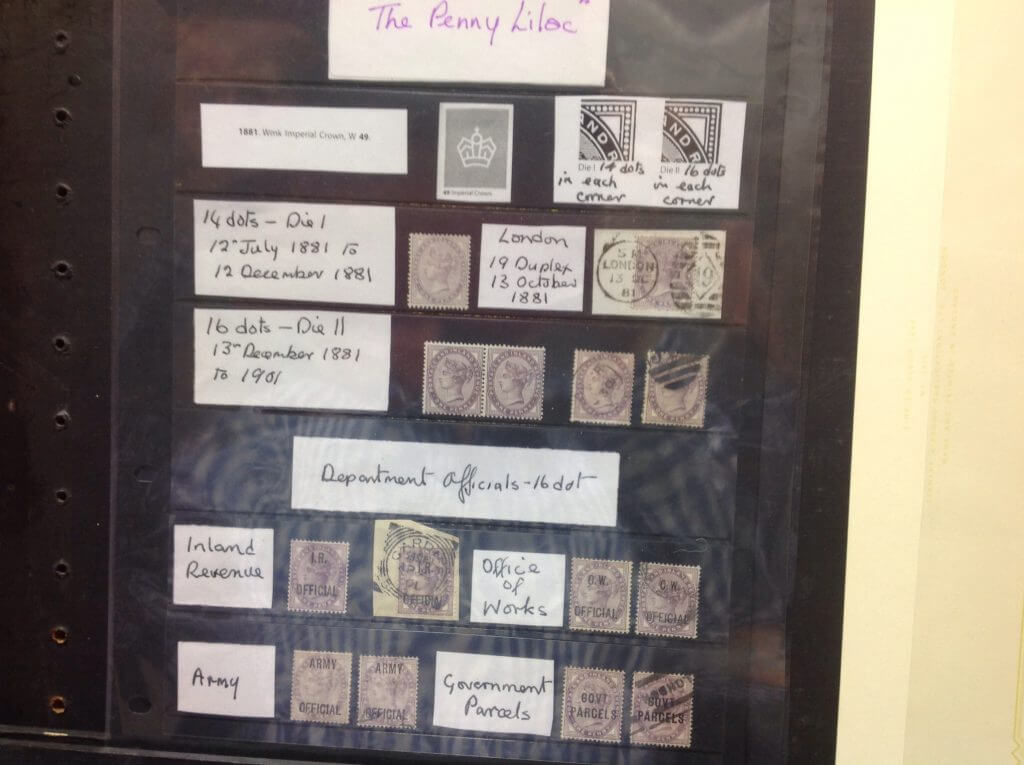 "The Penny Lilac"
1881. Wmk Imperial Crown, W 49.
49 Imperial Crown
Die I 14 dots
in each
corner
Die II 16 dots
in each
corner
AND R
AND R
14 dots - Die I
12th July 1881 to
12 December 1881
London
19 Duplex
13 October
1881
LONDON
13 OC
81
19
16 dots - Die II
13th December 1881
to 1901
Department Officials - 16 dot
Inland
Revenue
I.R.
OFFICIAL
I.R.
OFFICIAL
Office
of
Works
O.W.
OFFICIAL
O.W.
OFFICIAL
Army
ARMY
OFFICIAL
ARMY
OFFICIAL
Government
Parcels
GOVT
PARCELS
GOVT
PARCELS